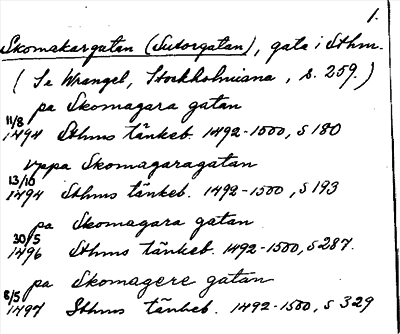 1.
Skomakargatan (Sutorgatan), gata i Sthm.
(Se Wrangel, Stockholmiana, s. 259.)
pa Skomagara gatan
11/8 1494 Sthms tänkeb. 1492-1500, s 180
vppa Skomagaragatan
13/10 1494 Sthms tänkeb. 1492-1500, s 193
pa Skomagara gatan
30/5 1496 Sthms tänkeb. 1492-1500, s 287.
pa Skomagere gatan
8/5 1497 Sthms tänkeb. 1492-1500, s 329